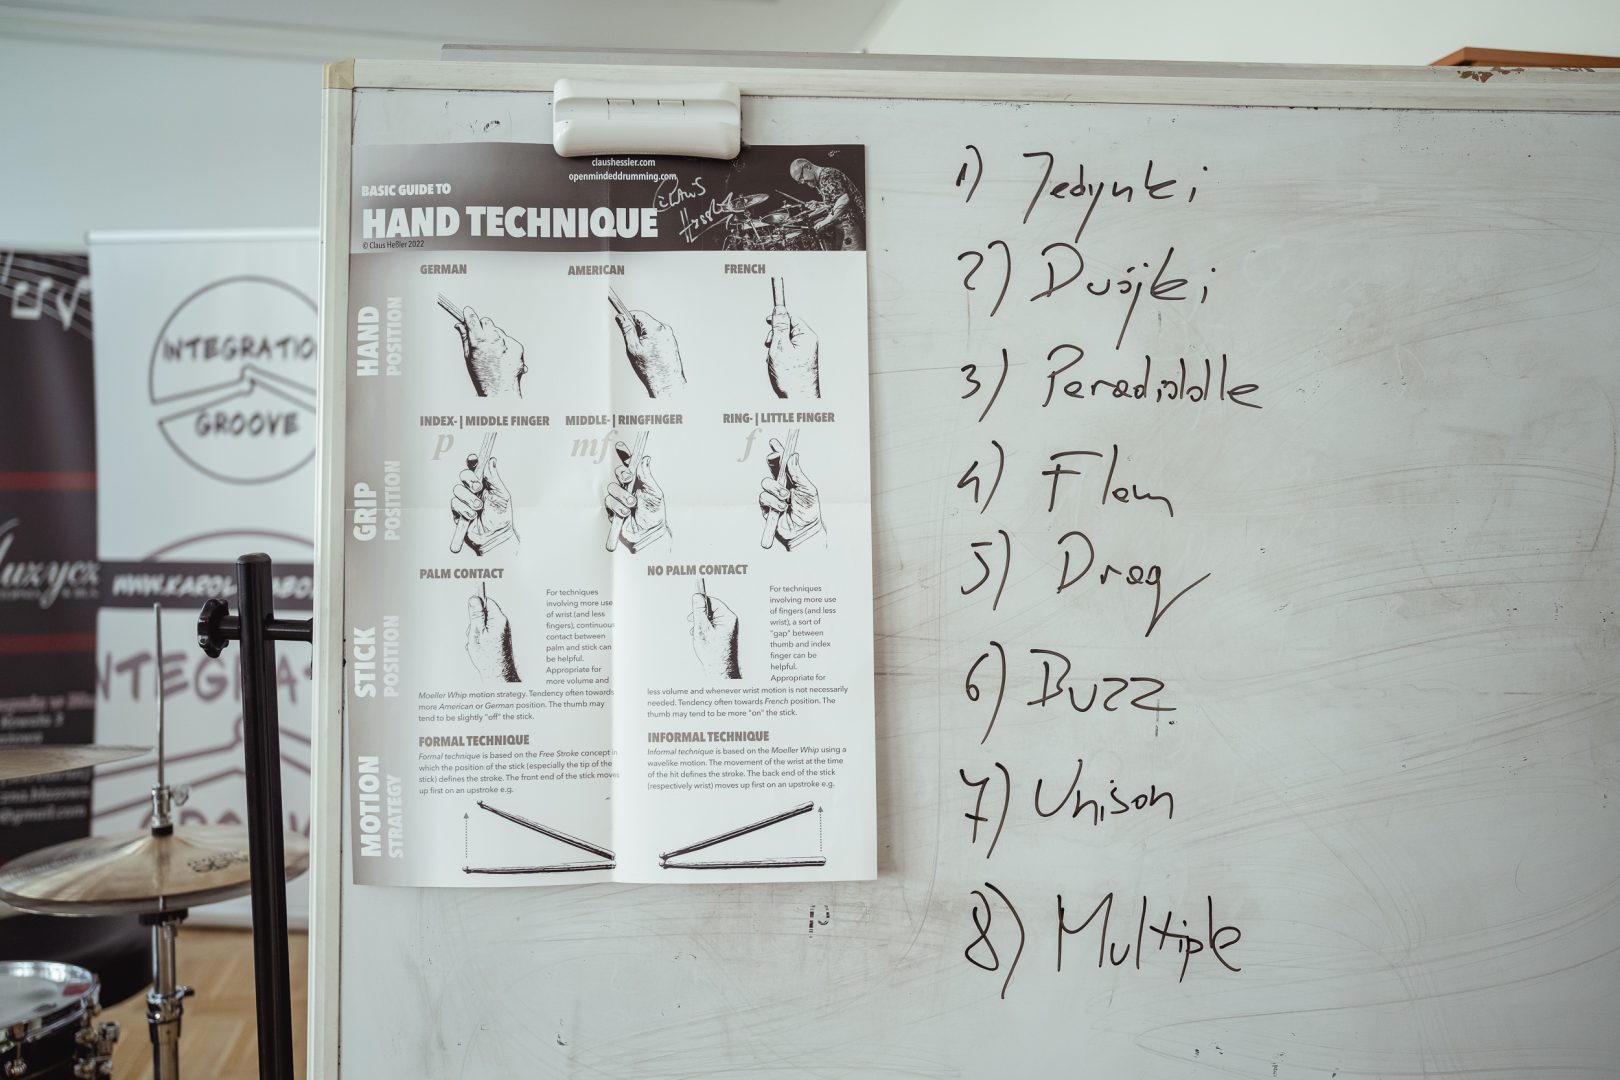 claushessler.com
openmindeddrumming.com
BASIC GUIDE TO
HAND TECHNIQUE
© Claus Heßler 2022
HAND
POSITION
GERMAN
AMERICAN
FRENCH
GRIP
POSITION
INDEX- | MIDDLE FINGER
p
MIDDLE- | RINGFINGER
mf
RING- | LITTLE FINGER
f
STICK
POSITION
PALM CONTACT
For techniques
involving more use
of wrist (and less
fingers), continuous
contact between
palm and stick can
be helpful.
Appropriate for
more volume and
Moeller Whip motion strategy. Tendency often towards
more American or German position. The thumb may
tend to be slightly "off" the stick.
NO PALM CONTACT
For techniques
involving more use
of fingers (and less
wrist), a sort of
"gap" between
thumb and index
finger can be
helpful.
Appropriate for
less volume and whenever wrist motion is not necessarily
needed. Tendency often towards French position. The
thumb may tend to be more "on" the stick.
MOTION
STRATEGY
FORMAL TECHNIQUE
Formal technique is based on the Free Stroke concept in
which the position of the stick (especially the tip of the
stick) defines the stroke. The front end of the stick moves
up first on an upstroke e.g.
INFORMAL TECHNIQUE
Informal technique is based on the Moeller Whip using a
wavelike motion. The movement of the wrist at the time
of the hit defines the stroke. The back end of the stick
(respectively wrist) moves up first on an upstroke e.g.
1) Jedynki
2) Dwójki
3) Paradiddle
4) Flam
5) Drag
6) Buzz
7) Unison
8) Multiple
INTEGRATIO
GROOVE
WWW.KAROL
NTEGRA